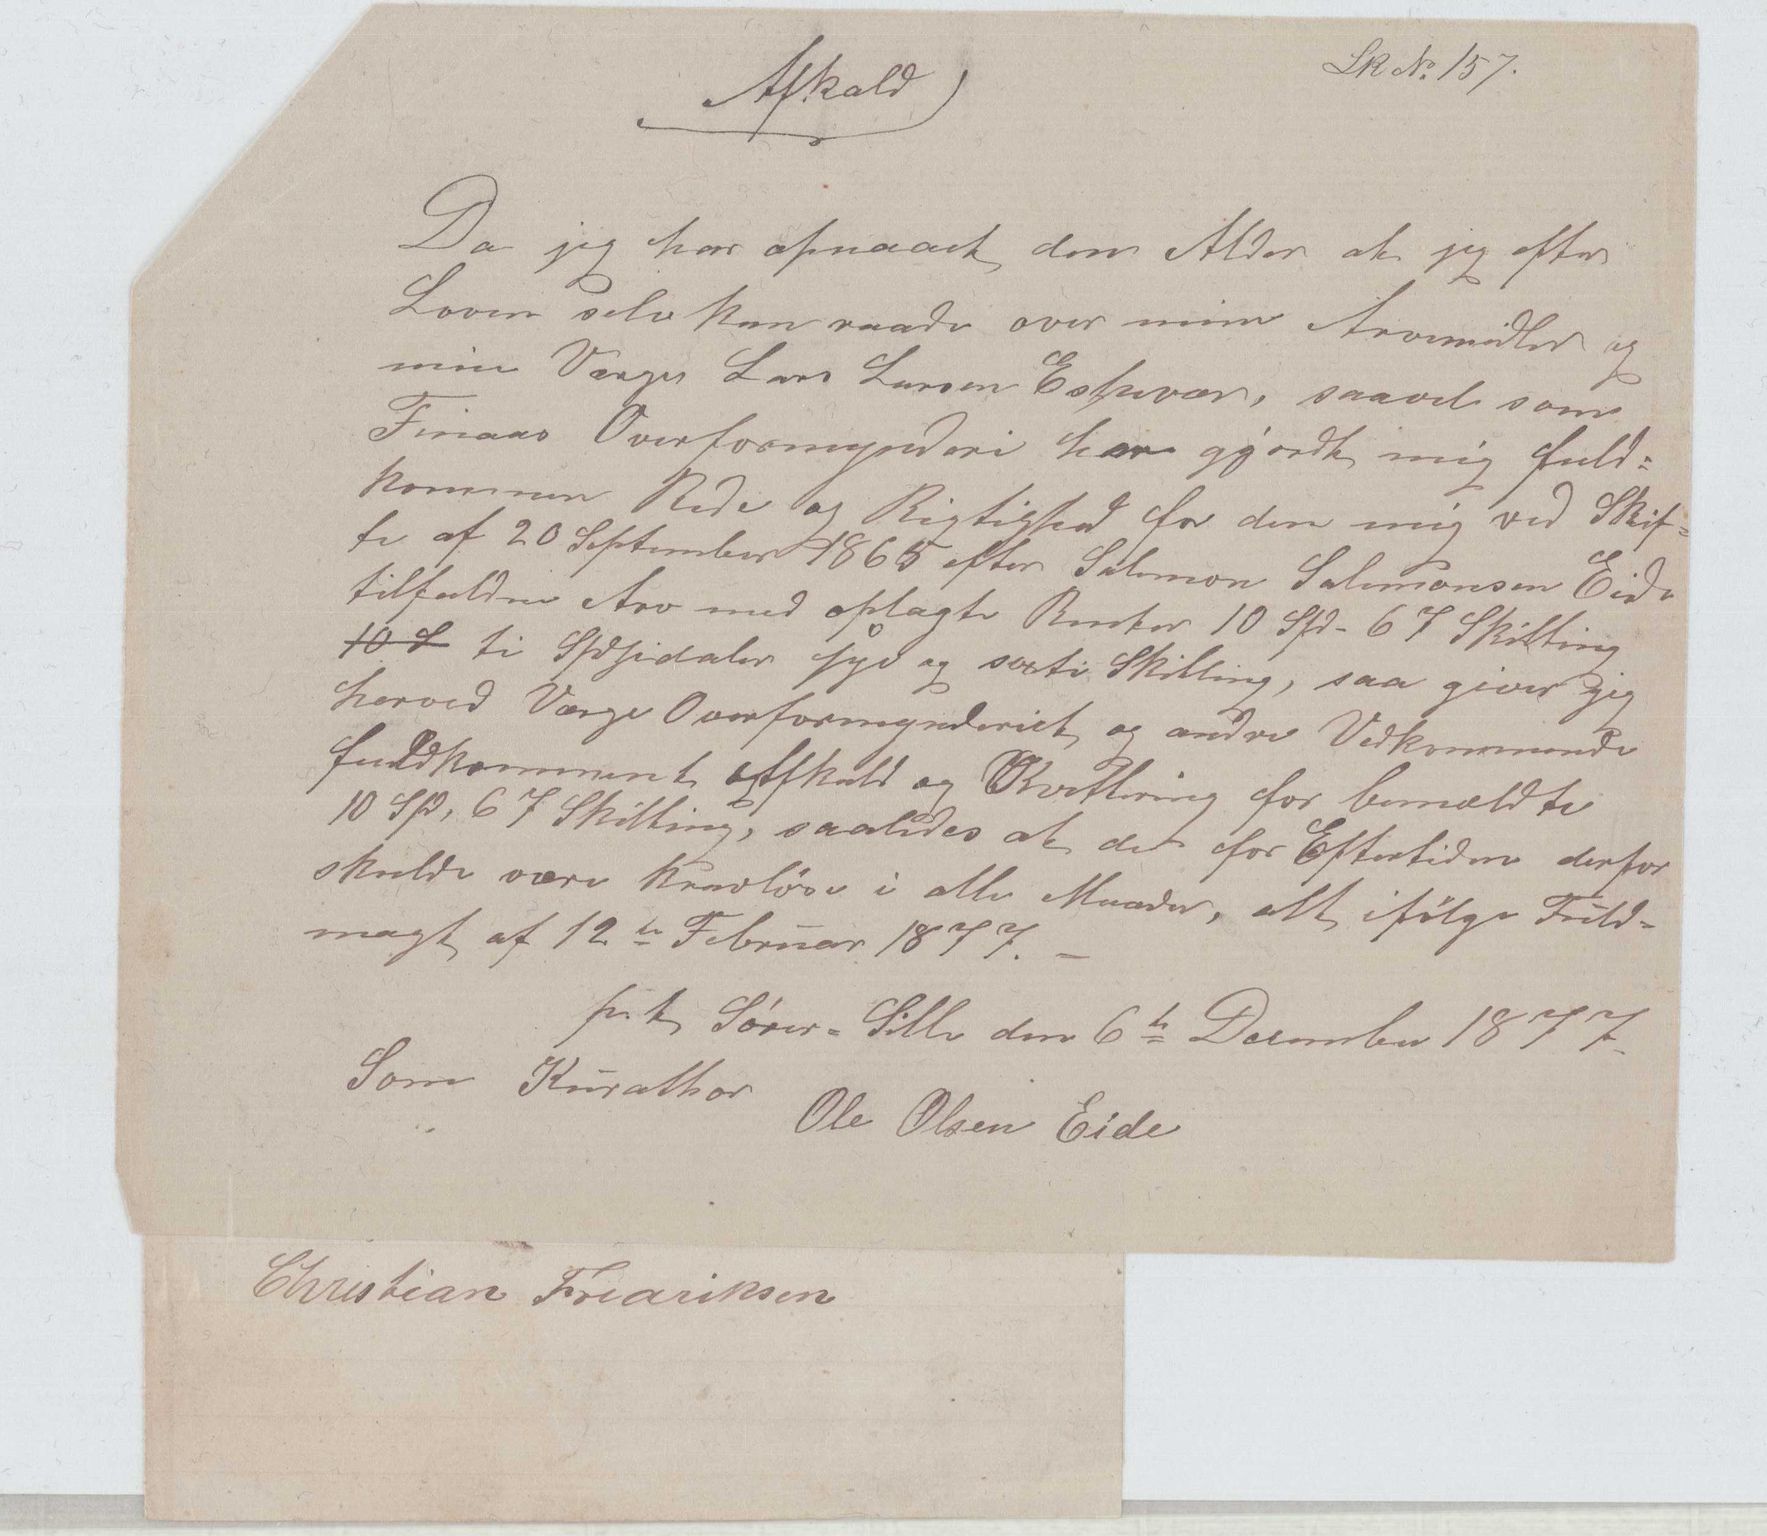 Afkald
Sk No. 157.
Da jeg har opnaaet den Alder at jeg efter
Loven selv kan raade over mine Arvemidler og
min Værge Lars Larsen Eskevær, saavel som
Finaas Overformynderi har gjordt mig fuld=
kommen Rede og Rigtighed for den mig ved Skif=
te af 20 September 1865 efter Salemon Salemonsen Eide
tilfaldne Arv med oplagte Renter 10 Spd. 67 Skilling
ti Spesidaler syv og sexti Skilling, saa giver jeg
herved Værge Overformynderiet og andre Vedkommende
fuldkomment Afkald og Kvittering for bemældte
10 Sp. 67 Skilling, saaledes at de for Eftertiden derfor
skulde være kravløse i alle Maader, alt ifølge Fuld=
magt af 12te Februar 1877. –
p.t. Sörer= Sille den 6te Desember 1877.
Som Kurathor
Ole Olsen Eide
Christian Fredriksen